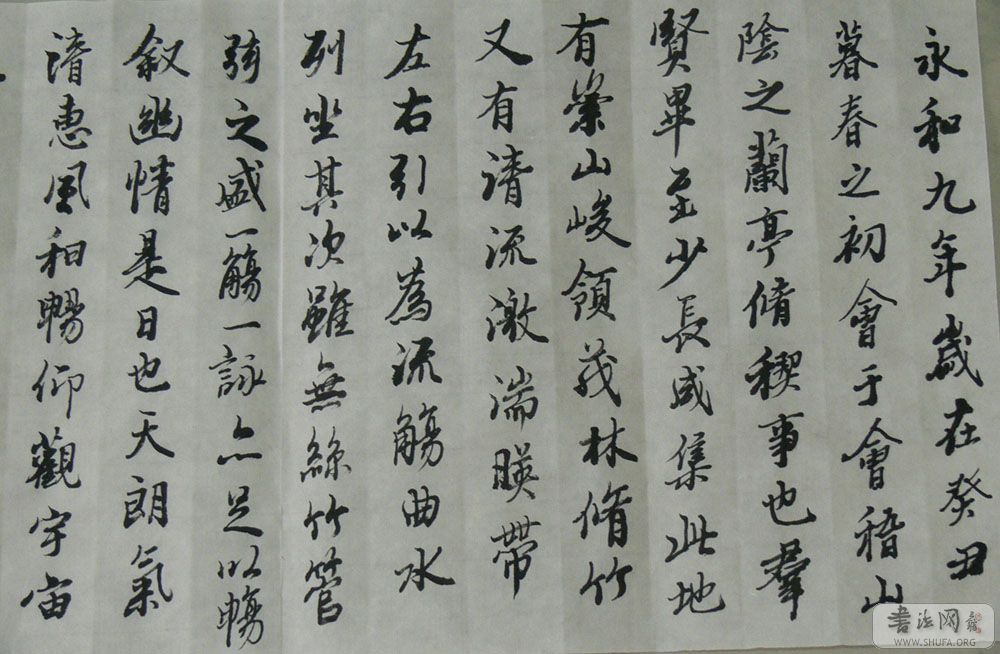 永和九年歲在癸丑
暮春之初會于會稽山
陰之蘭亭脩稧事也羣
賢畢至少長咸集此地
有崇山峻領茂林脩竹
又有清流激湍暎帶
左右引以為流觴曲水
列坐其次雖無絲竹管
弦之盛一觴一詠亦足以暢
叙幽情是日也天朗氣
清惠風和暢仰觀宇宙
書法网
WWW.SHUFA.ORG